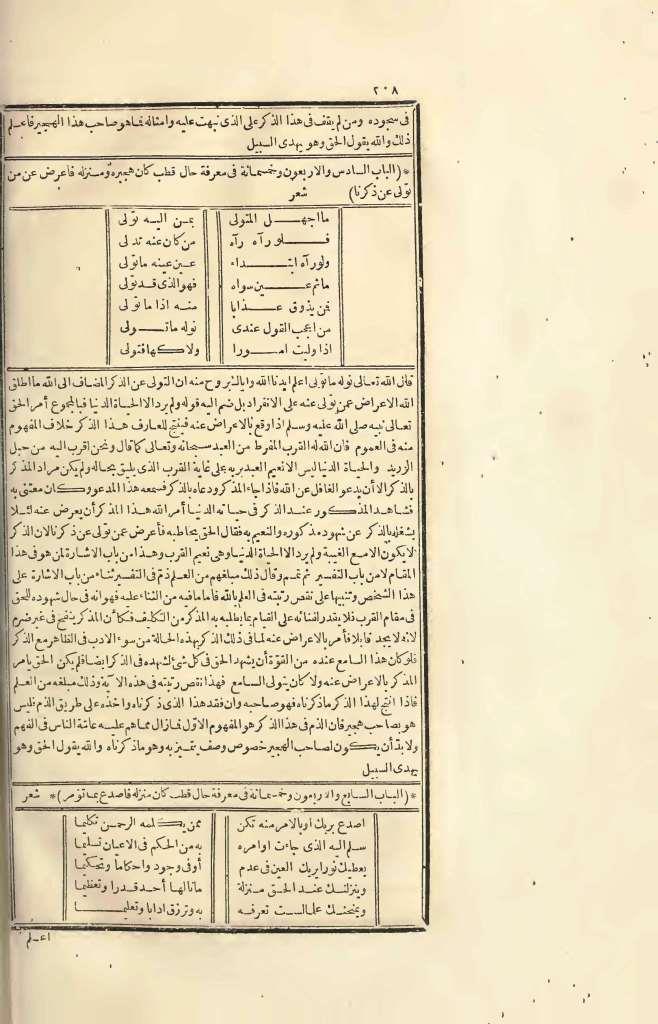 ٢٠٨
فى سجوده ومن لم يقف فى هذا الذكر على الذى نبهت عليه وامثاله فما هو صاحب هذا الهجير فاعلم
ذلك والله يقول الحق وهو يهدى السبيل
*(الباب السادس والاربعون وخمسمائة فى معرفة حال قطب كان هجيره ومنزله فاعرض عن من
تولى عن ذكرنا) شعر
ما اجهل المتولى بمن اليه تولى
فلو رآه رآه من كان عنه تدلى
ولو رآه ابتداء عين عينه ما تولى
ما ثم عين سواه فهو الذى قد تولى
فمن يذوق عذابا منه اذا ما تولى
من اعجب القول عندى نوله ما تولى
اذا وليت امورا ولاكها فتولى
قال الله تعالى نوله ما تولى اعلم ايدنا الله وايا بروح منه ان التولى عن الذكر المضاف الى الله ما اطلق
الله الاعراض عمن تولى عنه على الانفراد بل ضم اليه قوله ولم يرد الا الحياة الدنيا فبالمجموع أمر الحق
تعالى نبيه صلى الله عليه وسلم اذا وقع بالاعراض عنه فينتج للعارف هذا الذكر خلاف المفهوم
منه فى العموم فان الله له القرب المفرط من العبد سبحانه وتعالى كما قال ونحن اقرب اليه من حبل
الوريد والحياة الدنيا ليس الا نعيم العبد بربه على غاية القرب الذى يليق بجلاله ولم يكن مراد المذكر
بالذكر الا أن يدعو الغافل عن الله فاذا جاء المذكر ودعاه بالذكر فسمعه هذا المدعو وكان معتنى به
فشاهد المذكور عند الذكر فى حياته الدنيا أمر الله هذا المذكر أن يعرض عنه لئلا
يشغله بالذكر عن شهود مذكوره والنعيم به فقال الحق يخاطبه فأعرض عمن تولى عن ذكرنا لان الذكر
لا يكون الا مع الغيبة ولم يرد الا الحياة الدنيا وهى نعيم القرب وهذا من باب الاشارة لمن هو فى هذا
المقام لا من باب التفسير ثم تمم وقال ذلك مبلغهم من العلم ذم فى التفسير ثناء من باب الاشارة على
هذا الشخص وتنبيها على نقص رتبته فى العلم بالله فأما ما فيه من الثناء عليه فهو انه فى حال شهوده للحق
فى مقام القرب فلا يقدر لفنائه على القيام بما يطلبه به المذكر من التكليف فكأن المذكر ينفخ فى غير ضرم
لانه لا يجد قابلا فأمر بالاعراض عنه لما فى ذلك الذكر بهذه الحالة من سوء الادب فى الظاهر مع الذكر
فلو كان هذا السامع عنده من القوة أن يشهد الحق فى كل شئ لشهده فى الذكر ايضا فلم يكن الحق يامر
المذكر بالاعراض عنه ولا كان يتولى السامع فهذا نقص رتبته فى هذه الآية وذلك مبلغه من العلم
فاذا انتج لهذا الذكر ما ذكرناه فهو صاحبه وان فقد هذا الذى ذكرناه واخذه على طريق الذم فليس
هو بصاحب هجير فان الذم فى هذا الذكر هو المفهوم الاول فما زال مما هم عليه عامة الناس فى الفهم
ولا بد أن يكون لصاحب الهجير خصوص وصف يتميز به وهو ما ذكرناه والله يقول الحق وهو
يهدى السبيل
*(الباب السابع والاربعون وخمسمائة فى معرفة حال قطب كان منزله فاصدع بما تؤمر)* شعر
اصدع بربك او بالامر منه تكن ممن يكلمه الرحمن تكليما
سلم اليه الذى جاءت اوامره به من الحكم فى الاعيان تسليما
يعطيك نورا يريك العين فى عدم أو فى وجود واحكاما وتحكيما
وينزلنك عند الحق منزلة ما نالها أحد قدرا وتعظيما
ويمنحنك علما لست تعرفه به وترزق ادابا وتعليما
اعلم